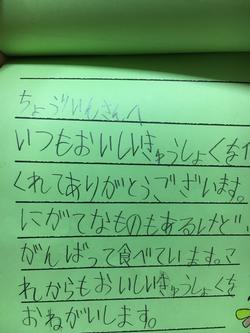 ちょうりいんさんへ
いつもおいしいきゅうしょくを
くれてありがとうございます。
にがてなものもあるけど、
がんばって食べています。こ
れからもおいしいきゅうしょくを
おねがいします。